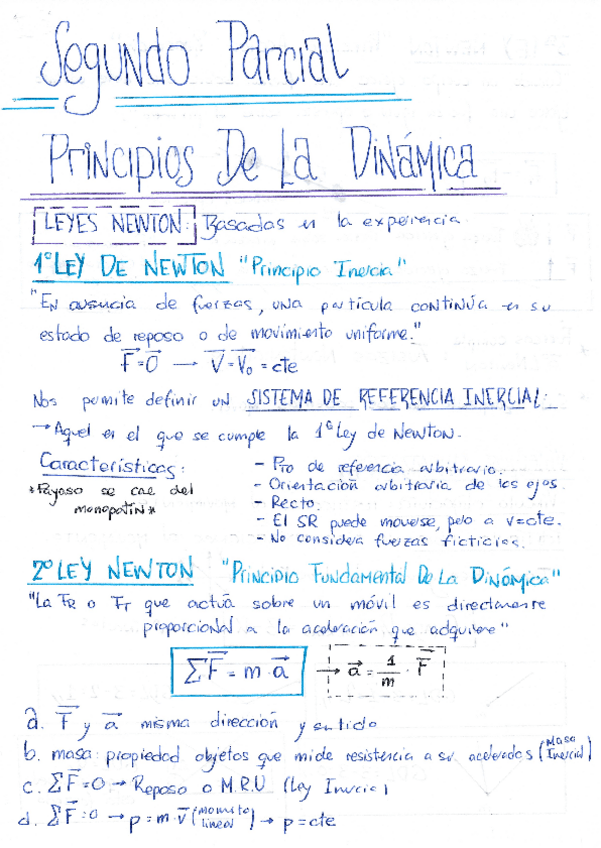 Segundo Parcial
Principios De La Dinámica
LEYES NEWTON: Basadas en la experiencia
1º LEY DE NEWTON "Principio Inercia"
"En ausencia de fuerzas, una partícula continúa en su
estado de reposo o de movimiento uniforme."
F⃗=0⃗ → V⃗=V⃗₀ = cte
Nos permite definir un SISTEMA DE REFERENCIA INERCIAL:
→ Aquel en el que se cumple la 1ª Ley de Newton.
Características:
*Payaso se cae del
monopatín*
- Pto de referencia arbitrario.
- Orientación arbitraria de los ejos.
- Recto.
- El SR puede moverse, pelo a v=cte.
- No considera fuerzas ficticias.
2º LEY NEWTON "Principio Fundamental De La Dinámica"
"La FR o FT que actúa sobre un móvil es directamente
proporcional a la aceleración que adquiere"
∑F⃗ = m·a⃗ → a⃗ = 1/m · F⃗
a. F⃗ y a⃗ misma dirección y sentido
b. masa: propiedad objetos que mide resistencia a ser acelerados (Masa Inercial)
c. ∑F⃗=0 → Reposo o M.R.U (Ley Inercia)
d. ∑F⃗=0 → p=m·v⃗ (momento lineal) → p=cte